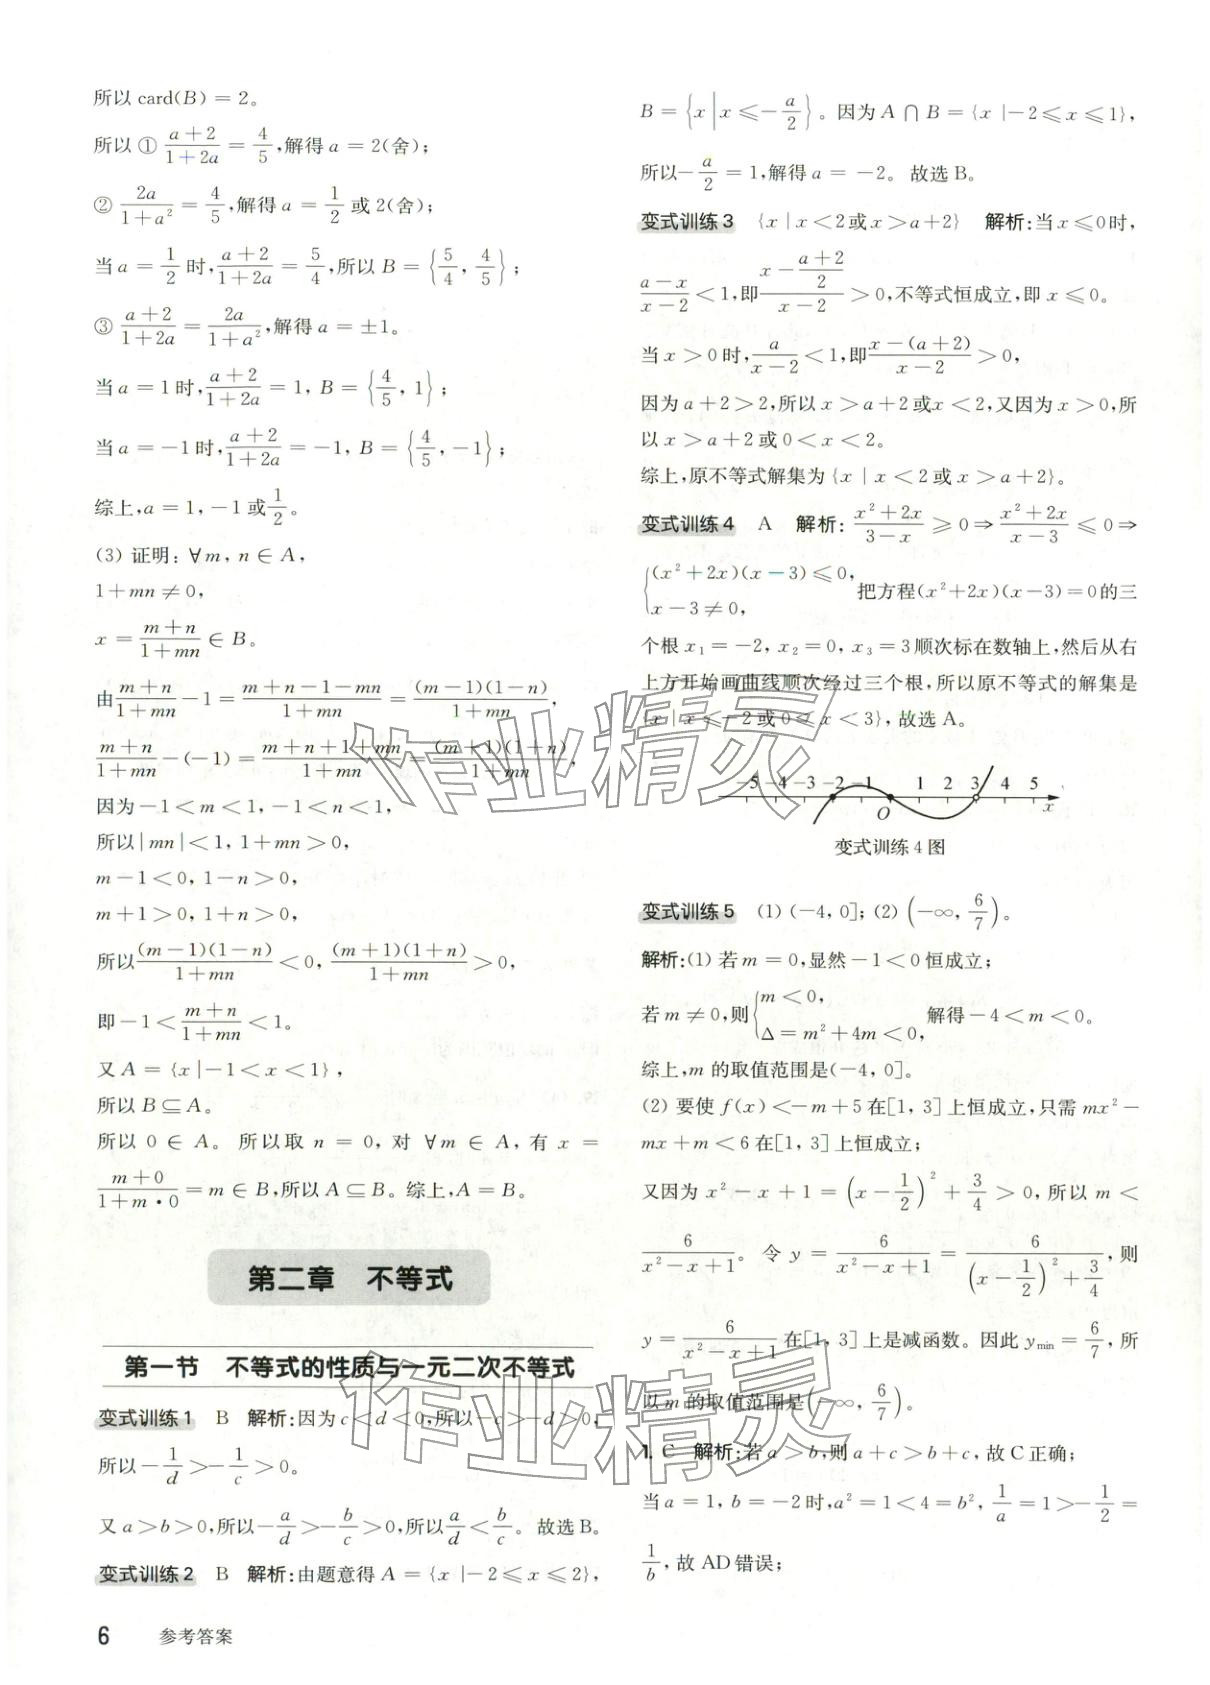 所以 card(B)=2。
所以 ① (a+2)/(1+2a) = 4/5,解得 a=2(舍);
② 2a/(1+a²) = 4/5,解得 a = 1/2 或 2(舍);
当 a = 1/2 时, (a+2)/(1+2a) = 5/4,所以 B = {5/4, 4/5};
③ (a+2)/(1+2a) = 2a/(1+a²),解得 a = ±1。
当 a = 1 时, (a+2)/(1+2a) = 1, B = {4/5, 1};
当 a = -1 时, (a+2)/(1+2a) = -1, B = {4/5, -1};
综上,a = 1, -1 或 1/2。
(3) 证明: ∀m, n ∈ A,
1+mn ≠ 0,
x = (m+n)/(1+mn) ∈ B。
由 (m+n)/(1+mn) - 1 = (m+n-1-mn)/(1+mn) = (m-1)(1-n)/(1+mn),
(m+n)/(1+mn) - (-1) = (m+n+1+mn)/(1+mn) = (m+1)(1+n)/(1+mn),
因为 -1<m<1, -1<n<1,
所以 |mn|<1, 1+mn>0,
m-1<0, 1-n>0,
m+1>0, 1+n>0,
所以 (m-1)(1-n)/(1+mn) < 0, (m+1)(1+n)/(1+mn) > 0,
即 -1 < (m+n)/(1+mn) < 1。
又 A = {x|-1<x<1},
所以 B⊆A。
所以 0 ∈ A。 所以取 n = 0, 对 ∀m ∈ A, 有 x =
(m+0)/(1+m·0) = m ∈ B,所以 A⊆B。综上,A=B。
第二章 不等式
第一节 不等式的性质与一元二次不等式
变式训练1 B 解析:因为 c<d<0,所以 -c>-d>0,
所以 -1/d > -1/c > 0。
又 a>b>0,所以 -a/d > -b/c > 0,所以 a/d < b/c。 故选 B。
变式训练2 B 解析:由题意得 A = {x|-2≤x≤2},
B = {x|x≤-a/2}。因为 A∩B = {x|-2≤x≤1},
所以 -a/2 = 1,解得 a = -2。 故选 B。
变式训练3 {x|x<2或x>a+2} 解析:当 x≤0时,
(a-x)/(x-2) < 1,即 (x-(a+2)/2)/(x-2) > 0,不等式恒成立,即 x≤0。
当 x>0时, a/(x-2) < 1,即 (x-(a+2))/(x-2) > 0,
因为 a+2>2,所以 x>a+2或x<2,又因为 x>0,所
以 x>a+2 或 0<x<2。
综上,原不等式解集为 {x|x<2 或 x>a+2}。
变式训练4 A 解析: (x²+2x)/(3-x) ≥ 0 ⇒ (x²+2x)/(x-3) ≤ 0 ⇒
{(x²+2x)(x-3)≤0, x-3≠0, 把方程(x²+2x)(x-3)=0的三
个根 x₁=-2, x₂=0, x₃=3 顺次标在数轴上,然后从右
上方开始画曲线顺次经过三个根,所以原不等式的解集是
{x|x≤-2 或 0≤x<3},故选 A。
-5 -4 -3 -2 -1 O 1 2 3 4 5 x
变式训练4图
变式训练5 (1) (-4, 0]; (2) (-∞, 6/7)。
解析:(1) 若 m=0,显然 -1<0 恒成立;
若 m≠0,则 {m<0, Δ=m²+4m<0, 解得 -4<m<0。
综上,m 的取值范围是(-4, 0]。
(2) 要使 f(x)<-m+5 在[1, 3]上恒成立,只需 mx²-
mx+m<6 在[1, 3]上恒成立;
又因为 x²-x+1 = (x-1/2)²+3/4 > 0, 所以 m <
6/(x²-x+1)。 令 y = 6/(x²-x+1) = 6/((x-1/2)²+3/4), 则
y = 6/(x²-x+1) 在[1, 3]上是减函数。因此 y_min = 6/7, 所
以 m 的取值范围是(-∞, 6/7)。
1. C 解析:若 a>b,则 a+c>b+c, 故 C 正确;
当 a=1, b=-2时,a²=1<4=b², 1/a = 1 > -1/2 =
1/b, 故 AD 错误;
6 参考答案
作业精灵
作业精灵